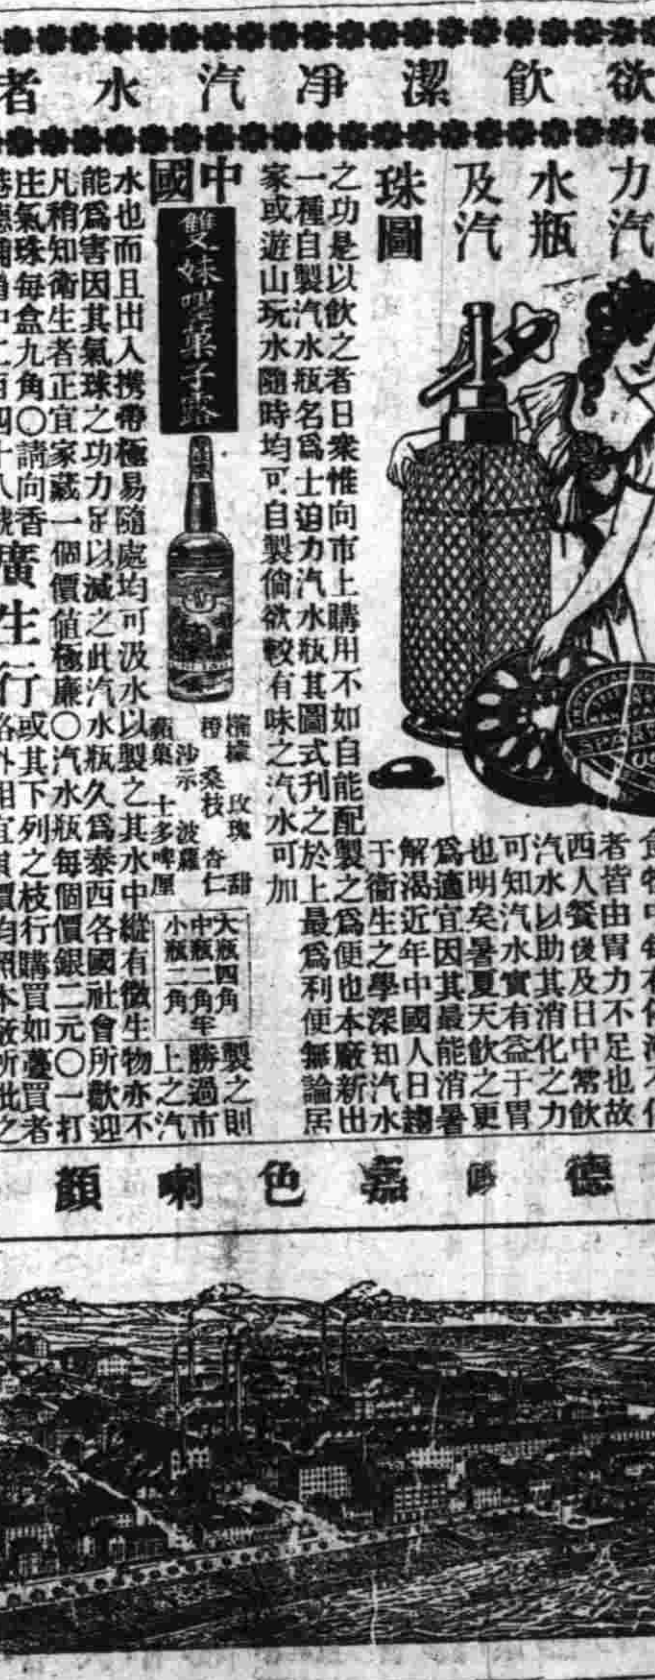 欲飲潔淨汽水者
力汽
水瓶
及汽
珠圖
者皆由胃力不足也故
西人餐後及日中常飲
汽水以助其消化之力
可知汽水實有益于胃
也明矣暑夏天飲之更
為適宜因其最能消暑
解渴近年中國人日趨
于衞生之學深知汽水
之功是以飲之者日衆惟向市上購用不如自能配製之為便也本廠新出
一種自製汽水瓶名為士迫力汽水瓶其圖式刋之於上最為利便無論居
家或遊山玩水隨時均可自製倘欲較有味之汽水可加
中國
雙妹嚜菓子露
檸檬 玫瑰 甜
橙 桑枝 杏仁
沙示 波羅
蘋菓 士多啤厘
大瓶四角
中瓶二角半
小瓶二角
製之則
勝過市
上之汽
水也而且出入携帶極易隨處均可汲水以製之其水中縱有微生物亦不
能為害因其氣球之功力足以滅之此汽水瓶久為泰西各國社會所歡迎
凡稍知衛生者正宜家藏一個價值極廉〇汽水瓶每個價銀二元〇一打
庄氣珠每盒九角〇請向香
廣生行
或其下列之枝行購買如躉買者
德
嘉色喇顏